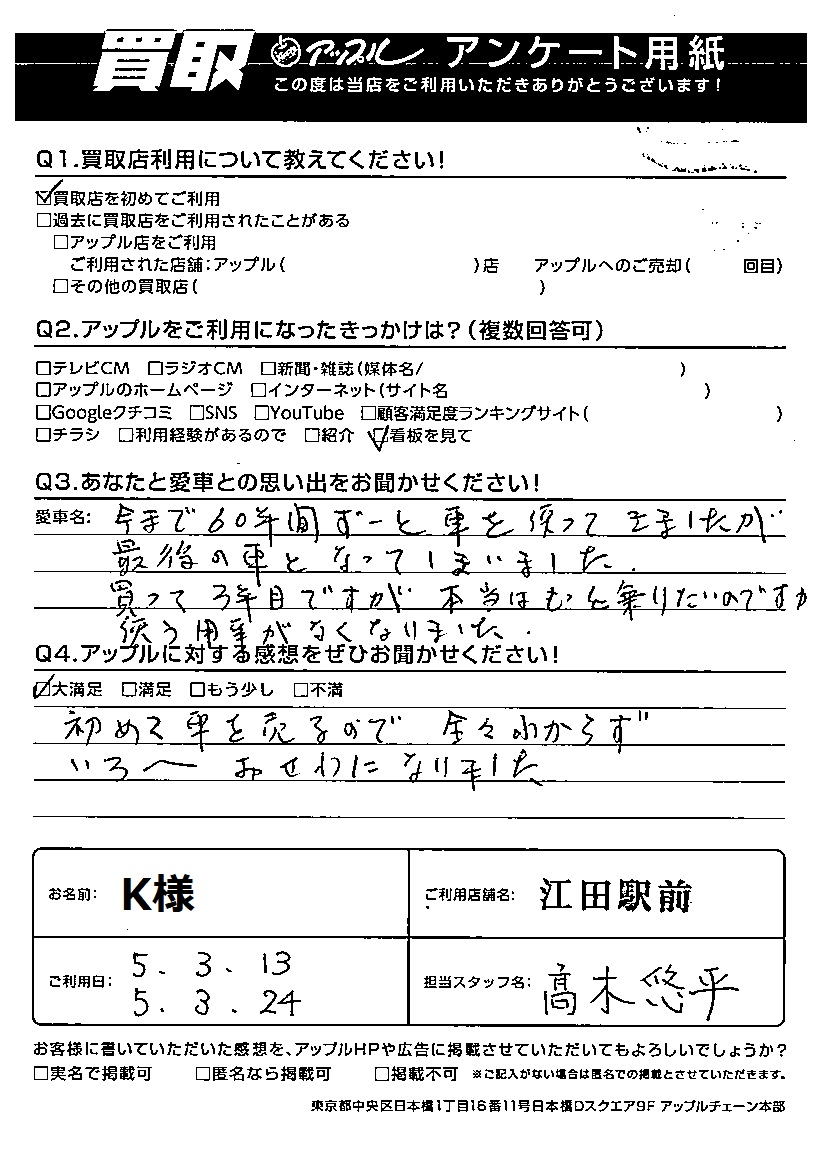 買取 アップル アンケート用紙
この度は当店をご利用いただきありがとうございます！
Q1.買取店利用について教えてください！
☑買取店を初めてご利用
□過去に買取店をご利用されたことがある
□アップル店をご利用
ご利用された店舗：アップル( )店 アップルへのご売却( 回目)
□その他の買取店( )
Q2.アップルをご利用になったきっかけは？(複数回答可)
□テレビCM □ラジオCM □新聞・雑誌(媒体名/ )
□アップルのホームページ □インターネット(サイト名 )
□Googleクチコミ □SNS □YouTube □顧客満足度ランキングサイト( )
□チラシ □利用経験があるので □紹介 ☑看板を見て
Q3.あなたと愛車との思い出をお聞かせください！
愛車名： 今まで60年間ずーと車を使ってきましたが
最後の車となってしまいました．
買って3年目ですが 本当はもっと乗りたいのですが
使う用事がなくなりました．
Q4.アップルに対する感想をぜひお聞かせください！
☑大満足 □満足 □もう少し □不満
初めて車を売るので 全々わからず
いろ〜 おせわになりました
お名前： K様 ご利用店舗名： 江田駅前
ご利用日： 5．3．13 担当スタッフ名： 高木悠平
5．3．24
お客様に書いていただいた感想を、アップルHPや広告に掲載させていただいてもよろしいでしょうか？
□実名で掲載可 □匿名なら掲載可 □掲載不可 ※ご記入がない場合は匿名での掲載とさせていただきます。
東京都中央区日本橋1丁目16番11号日本橋Dスクエア9F アップルチェーン本部